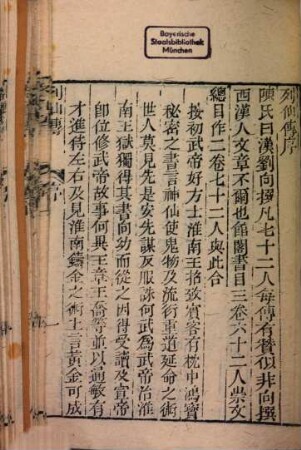 Bayerische
Staatsbibliothek
München
列仙傳序
陳氏曰漢劉向撰凡七十二人每傳有贊似非向撰
西漢人文章不爾也館閣書目三卷六十二人崇文
總目作二卷七十二人與此合
按初武帝好方士淮南王招致賓客有枕中鴻寶
秘密之書言神仙使鬼物及流術重道延命之術
世人莫見先是安先謀反服誅何武為武帝治淮
南王獄獨得其書向幼而從之因得受讀及宣帝
卽位修武帝故事何與王章王喬等並以通敏有
才進待左右及見淮南鑄金之術上言黃金可成